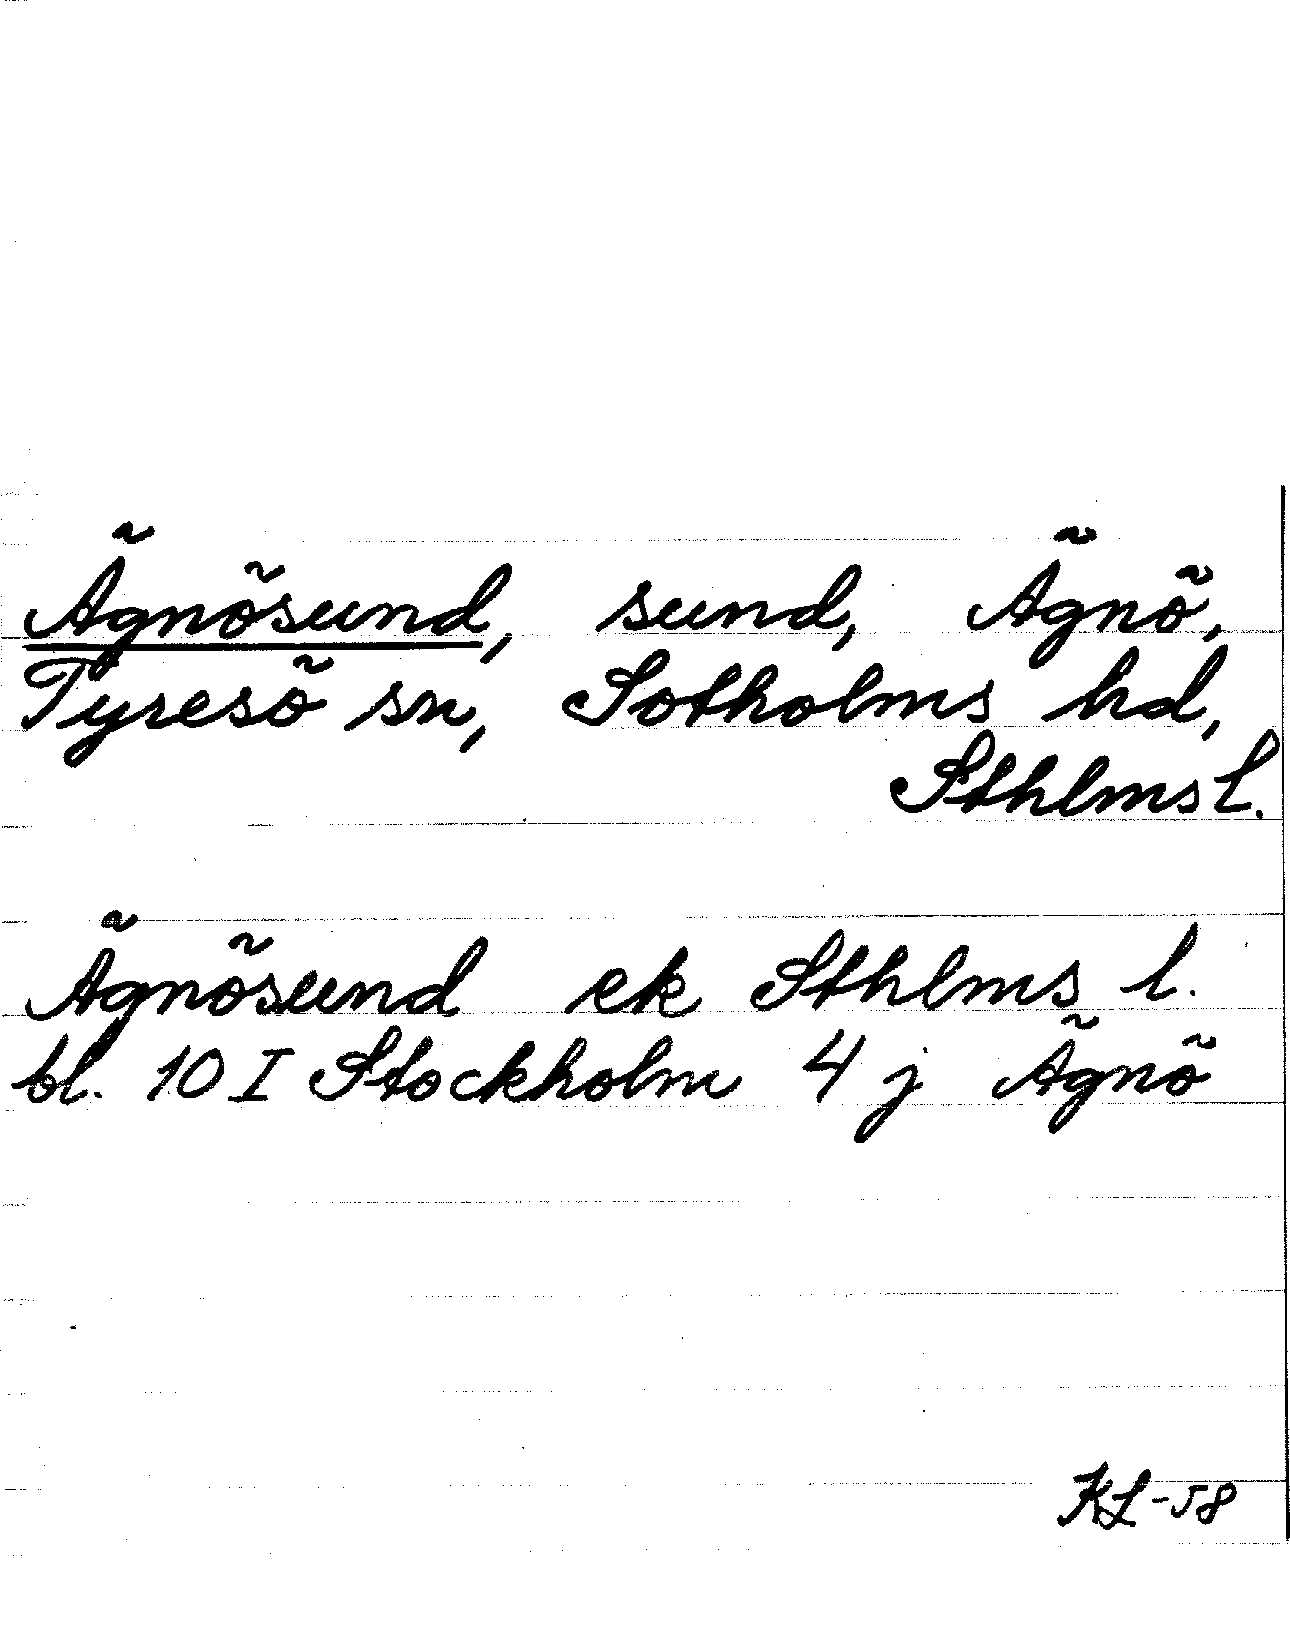 Ägnösund, sund, Ägnö,
Tyresö sn, Sotholms hd,
Sthlms l.
Ägnösund ek Sthlms l.
bl. 10 I Stockholm 4 j Ägnö
KL-58